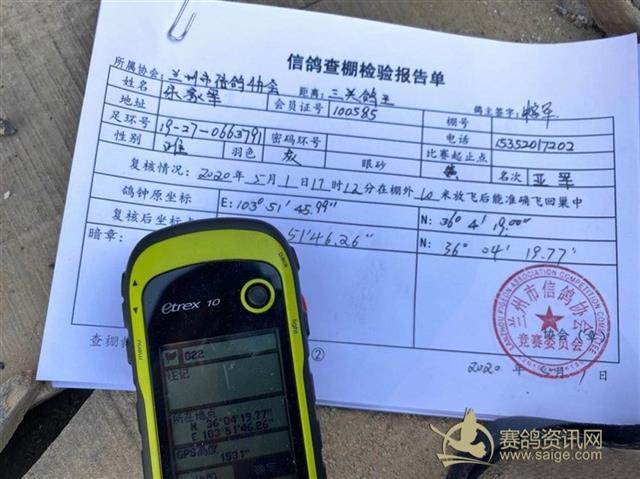 信鸽查棚检验报告单
所属协会: 兰州市信鸽协会 距离: 三关鸽王 鸽主签字:
姓名 会员证号 100585 棚号
地址 电话 15352017202
足环号 19-27-0663791 密码环号 比赛起止点
性别 雄 羽色 灰 眼砂 名次 亚军
复核情况: 2020年5月1日17时12分在棚外10米放飞后能准确飞回巢中
鸽钟原坐标 E: 103° 51' 45.99" N: 36° 4' 19.00"
复核后坐标 51'46.26" N: 36° 04' 19.77"
暗章:
兰州市信鸽协会
竞赛委员会
协会(章)
查棚
②
2020年
etrex 10
022
注记
所在地点
N 36°04'19.77"
E 103°51'46.26"
GPS高度
1531
menu
light
赛鸽资讯网
www.saige.com